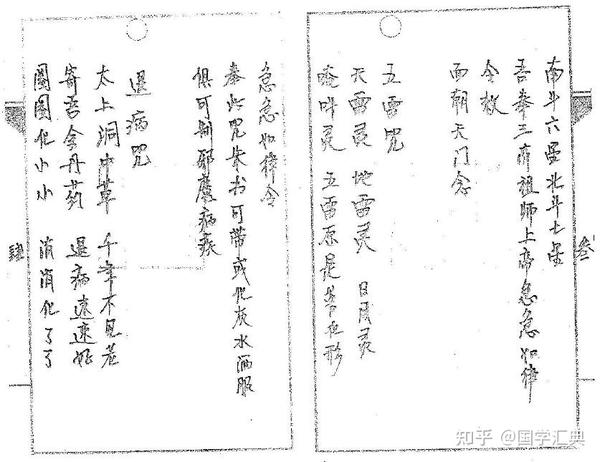 南斗六星北斗七星
吾奉三清祖师上帝急急如律
令敕
面朝天门念
五雷咒
天雷灵 地雷灵 日月灵
唵吽灵 五雷原是 形
叁
急急如律令
奉此咒 书可带或化灰水酒服
俱可制邪魔病疾
退病咒
太上洞中草 千年不见老
寄吾金丹药 退病速速好
团团化小小 消消化了了
肆
知乎 @国学汇典